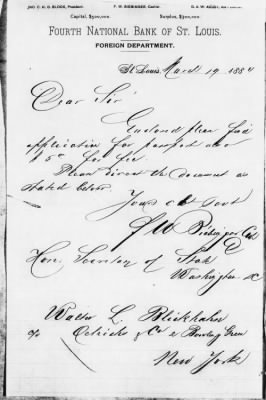 JNO. C. H. D. BLOCK, President. F. W. BIEBINGER, Cashier.
Capital, $500,000. Surplus, $300,000.
FOURTH NATIONAL BANK OF ST. LOUIS.
FOREIGN DEPARTMENT.
St. Louis, March 19 1884
Dear Sir
Enclosed please find
application for passport and
$5 00 for fee.
Please direct the document as
stated below.
Yours obt Servt
F W Biebinger Cas
Hon. Secretary of State
Washington DC
Walter L. Blickhahn
c/o Oelrichs & Co 2 Bowling Green
New York